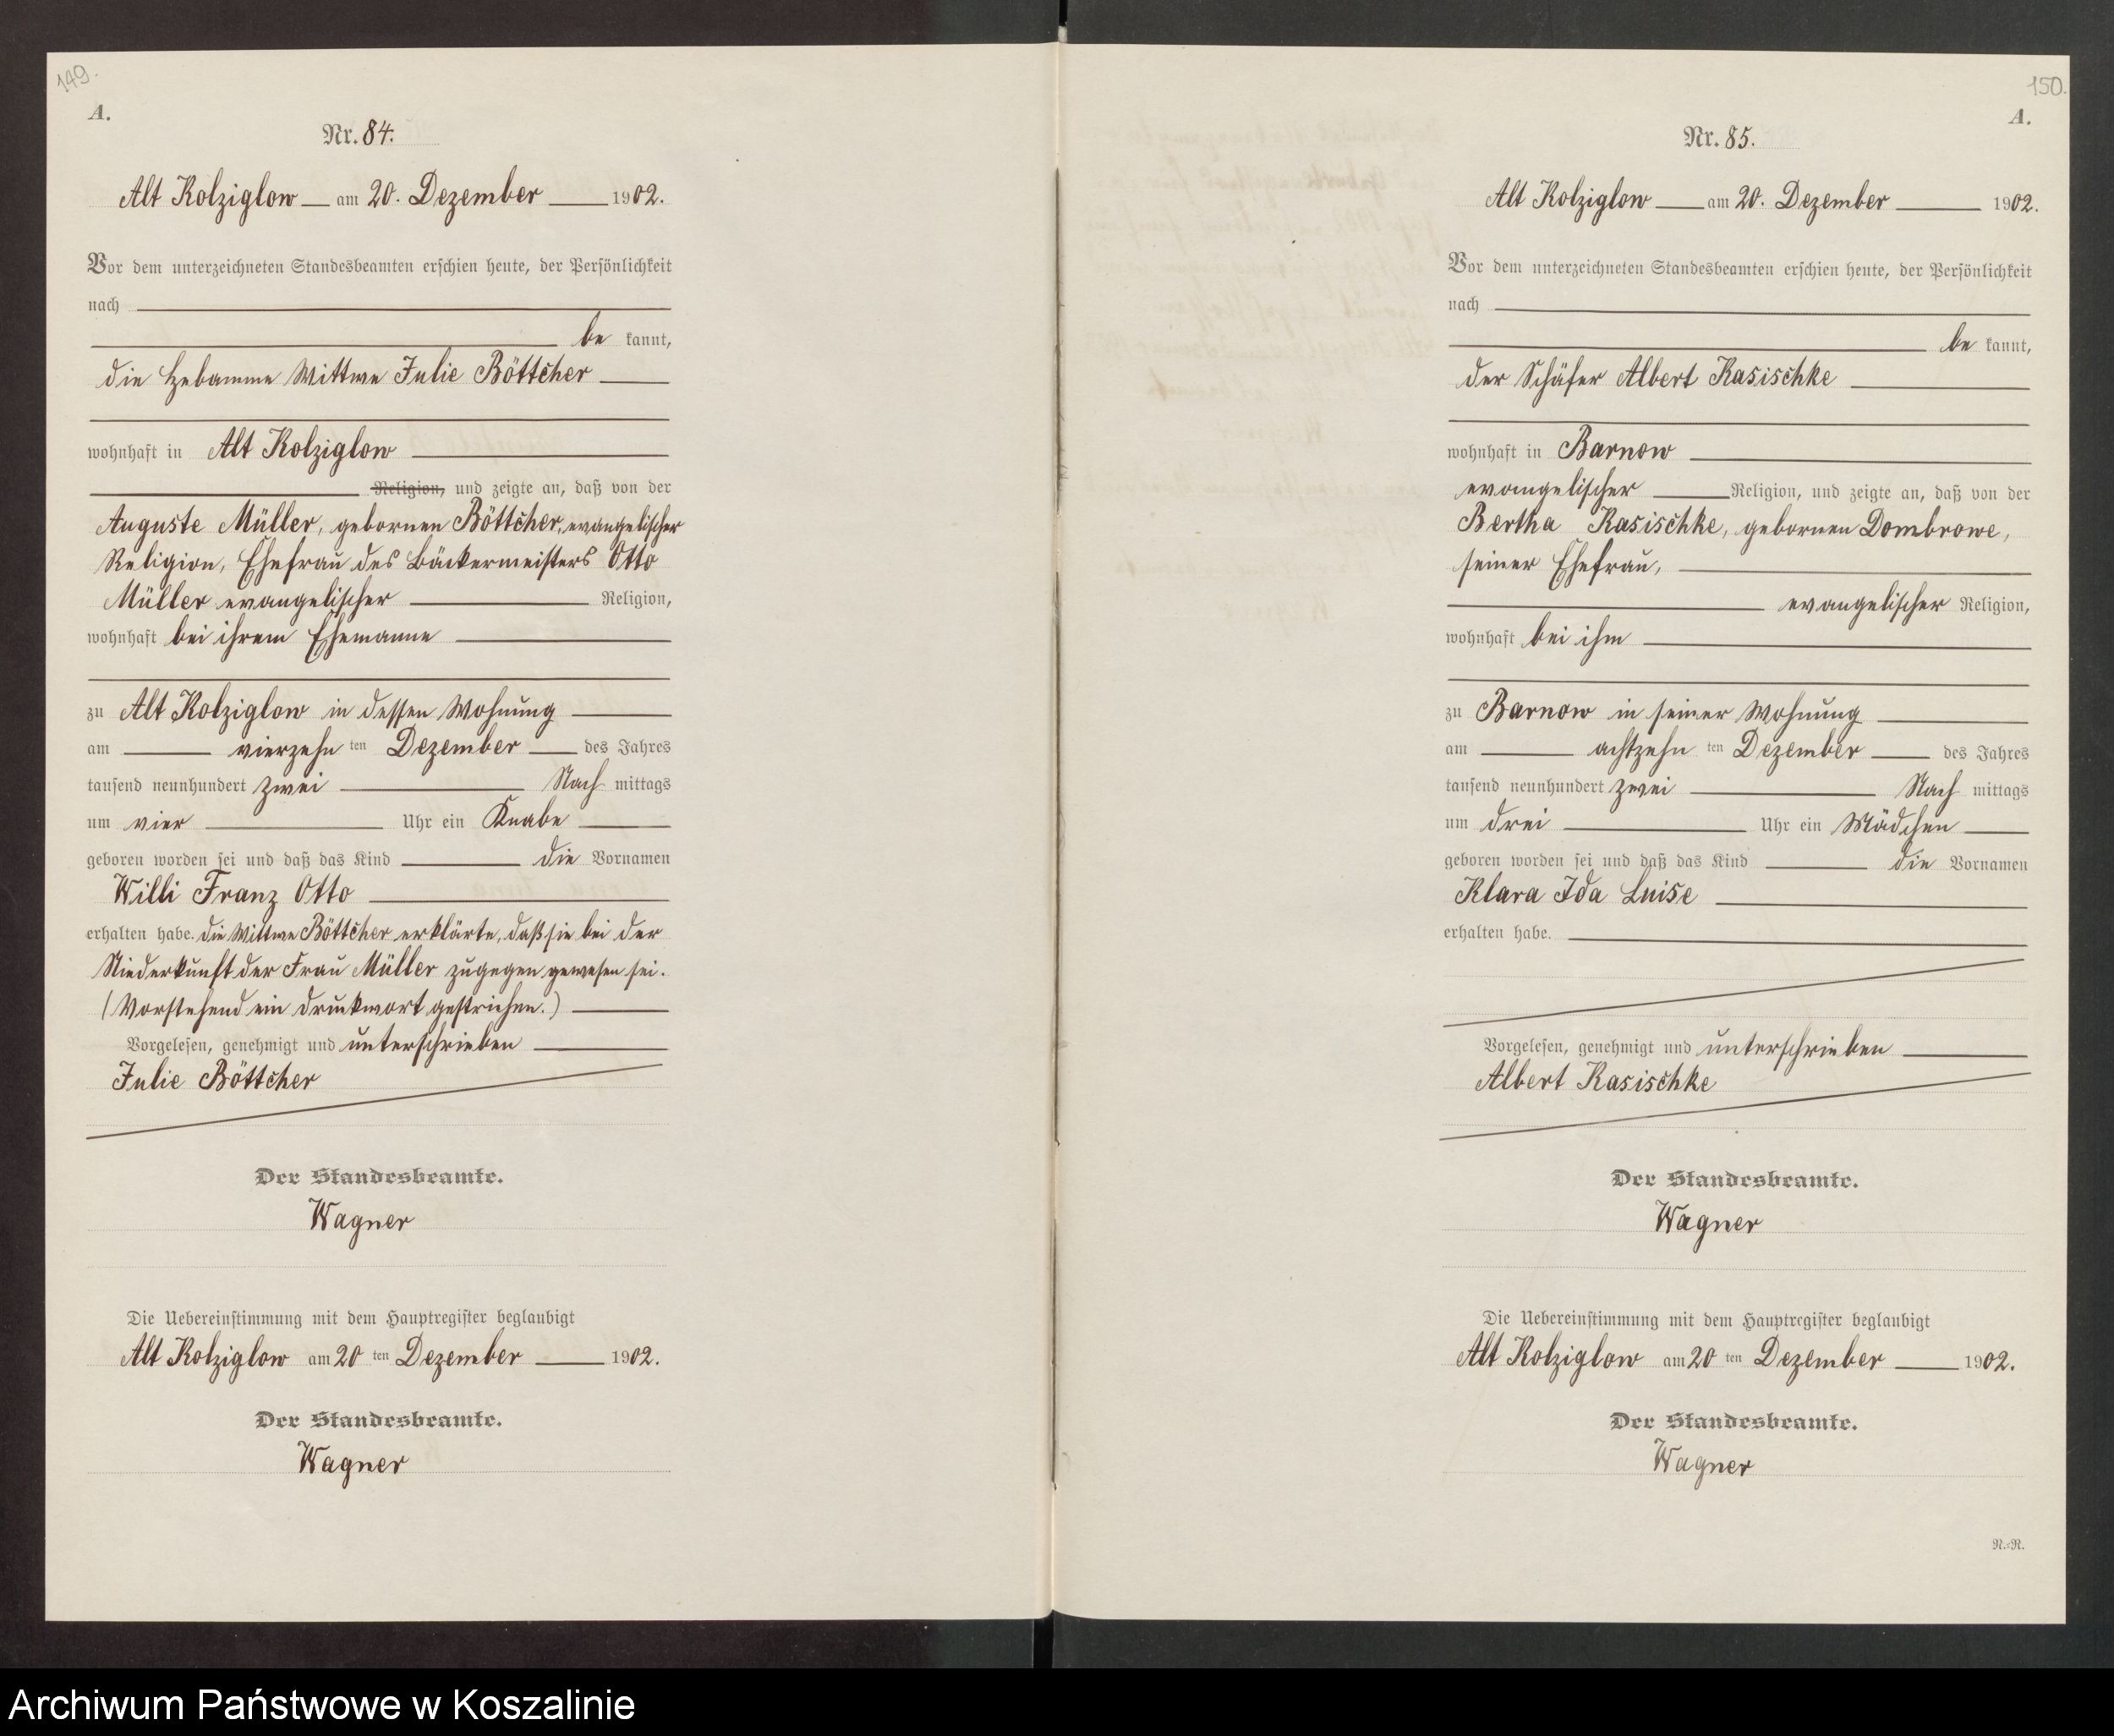 149.
A.
Nr. 84.
Alt Kolziglow am 20. Dezember 1902.
Vor dem unterzeichneten Standesbeamten erschien heute, der Persönlichkeit
nach
be kannt,
die Hebamme Wittwe Julie Böttcher
wohnhaft in Alt Kolziglow
Religion, und zeigte an, daß von der
Auguste Müller, gebornen Böttcher, evangelischer
Religion, Ehefrau des Bäckermeisters Otto
Müller evangelischer Religion,
wohnhaft bei ihrem Ehemanne
zu Alt Kolziglow in dessen Wohnung
am vierzehn ten Dezember des Jahres
tausend neunhundert zwei Nach mittags
um vier Uhr ein Knabe
geboren worden sei und daß das Kind die Vornamen
Willi Franz Otto
erhalten habe. Die Wittwe Böttcher erklärte, daß sie bei der
Niederkunft der Frau Müller zugegen gewesen sei.
(Vorstehend ein Druckwort gestrichen.)
Vorgelesen, genehmigt und unterschrieben
Julie Böttcher
Der Standesbeamte.
Wagner
Die Uebereinstimmung mit dem Hauptregister beglaubigt
Alt Kolziglow am 20 ten Dezember 1902.
Der Standesbeamte.
Wagner
150.
A.
Nr. 85.
Alt Kolziglow am 20. Dezember 1902.
Vor dem unterzeichneten Standesbeamten erschien heute, der Persönlichkeit
nach
be kannt,
der Schäfer Albert Kasischke
wohnhaft in Barnow
evangelischer Religion, und zeigte an, daß von der
Bertha Kasischke, gebornen Dombrowe,
seiner Ehefrau,
evangelischer Religion,
wohnhaft bei ihm
zu Barnow in seiner Wohnung
am achtzehn ten Dezember des Jahres
tausend neunhundert zwei Nach mittags
um drei Uhr ein Mädchen
geboren worden sei und daß das Kind die Vornamen
Klara Ida Luise
erhalten habe.
Vorgelesen, genehmigt und unterschrieben
Albert Kasischke
Der Standesbeamte.
Wagner
Die Uebereinstimmung mit dem Hauptregister beglaubigt
Alt Kolziglow am 20 ten Dezember 1902.
Der Standesbeamte.
Wagner
N.=R.
Archiwum Państwowe w Koszalinie